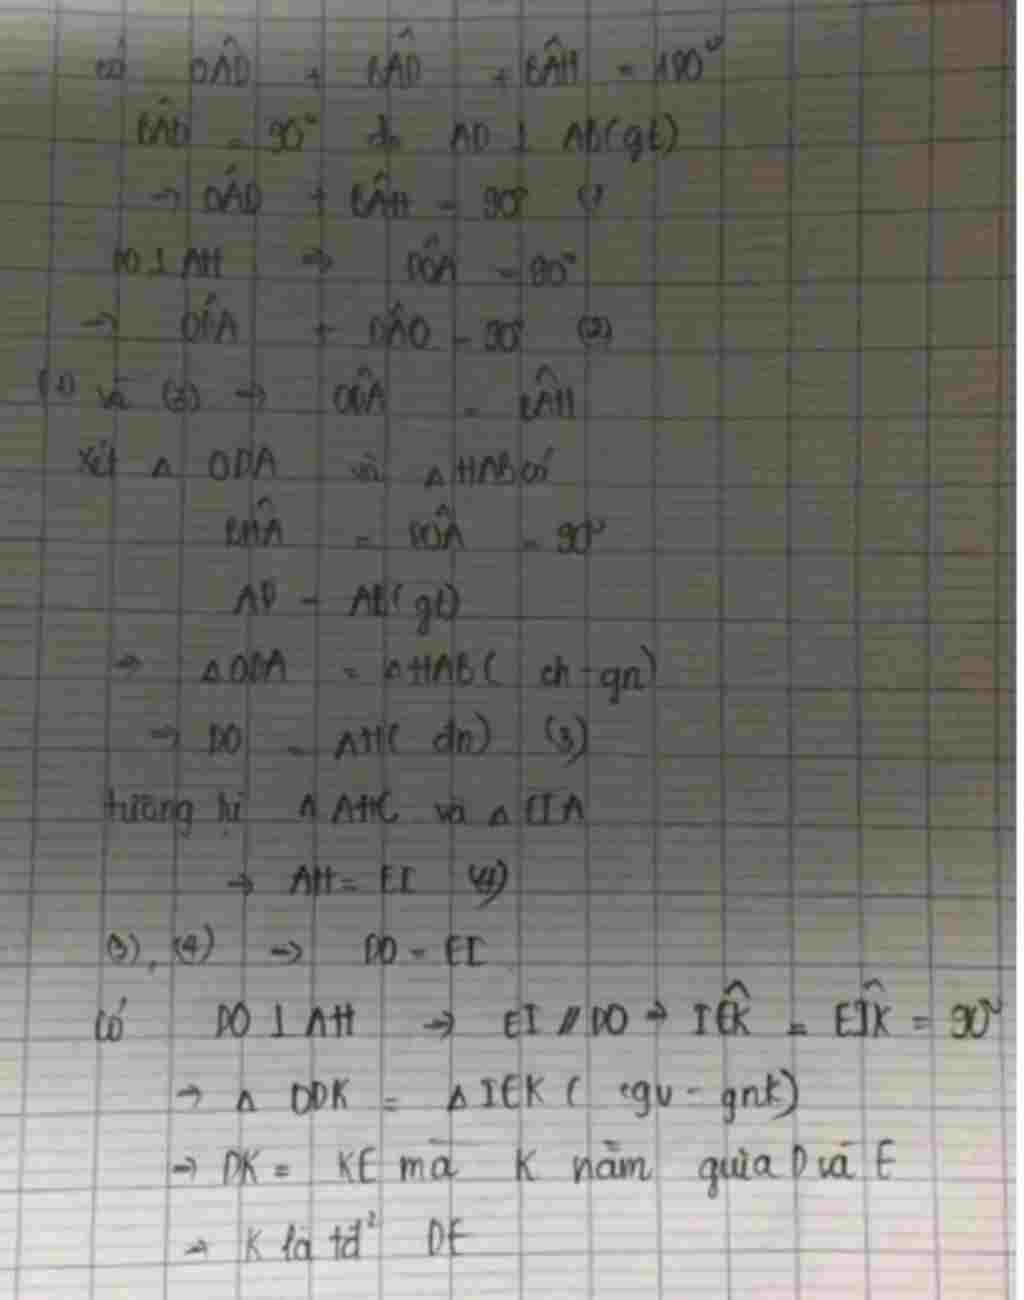 có OÂD + BÂD + BÂH = 180°
BÂD = 90° do AD ⊥ AB (gt)
→ OÂD + BÂH = 90° (1)
DO ⊥ AH ⇒ DÔA = 90°
→ OD̂A + DÂO = 90° (2)
(1) và (2) → OD̂A = BÂH
Xét △ ODA và △ HAB có
BĤA = DÔA = 90°
AD = AB (gt)
⇒ △ ODA = △ HAB ( ch - gn)
→ DO = AH ( đn) (3)
tương tự △ AHC và △ EIA
→ AH = EI (4)
(3), (4) → DO = EI
Có DO ⊥ AH → EI // DO → IÊK = EÎK = 90°
→ △ ODK = △ IEK ( cgv - gnk)
→ DK = KE mà K nằm giữa D và E
→ K là tđ² DE